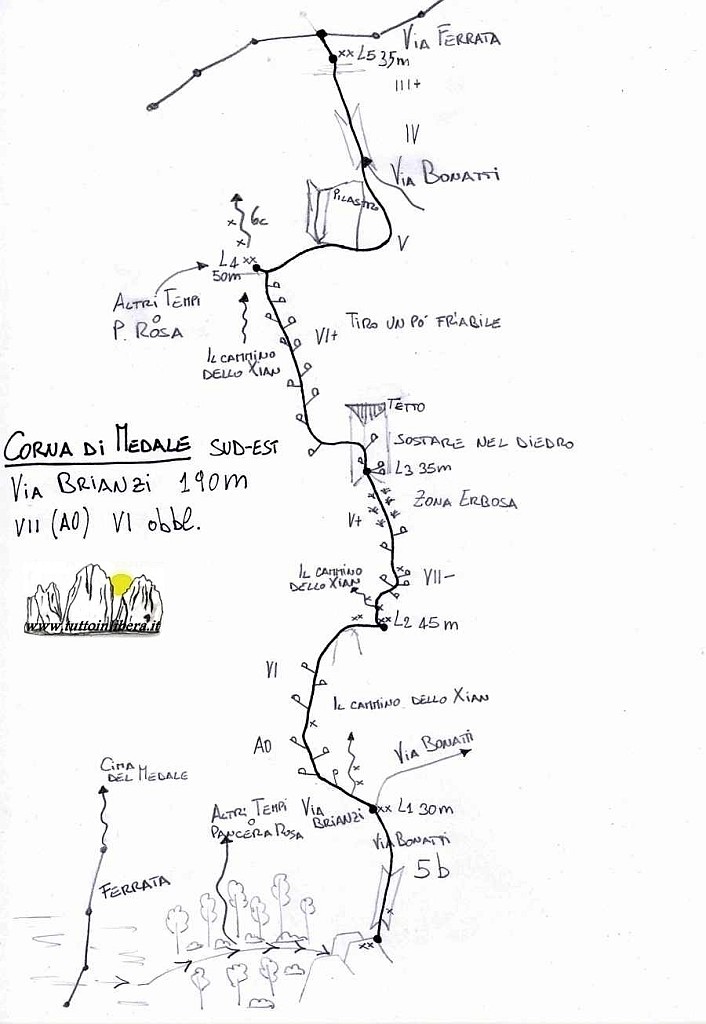 VIA FERRATA
xx L5 35m
III+
IV
VIA BONATTI
PILASTRO
6c
V
L4 xx
50m
ALTRI TEMPI
O
P. ROSA
IL CAMMINO
DELLO XIAN
VI+
TIRO UN PO' FRIABILE
TETTO
CORNA DI MEDALE SUD-EST
SOSTARE NEL DIEDRO
L3 35m
VIA BRIANZI 190m
ZONA ERBOSA
V+
VII (A0) VI obbl.
IL CAMMINO
DELLO XIAN
VII-
www.tuttoinlibera.it
xx
xx L2 45m
VI
IL CAMMINO DELLO XIAN
A0
VIA BONATTI
CIMA
DEL MEDALE
ALTRI TEMPI
O
PANCERA ROSA
VIA
BRIANZI
xx L1 30m
VIA BONATTI
5b
FERRATA
xx